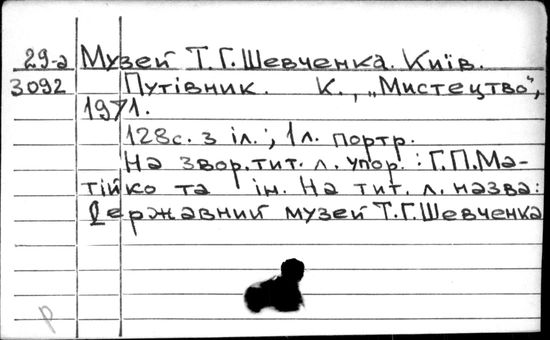 29-а Музей Т.Г.Шевченка. Київ.
3092 Путівник. К., „Мистецтво",
1971.
128с. з іл.; 1л. портр.
На звор. тит. л. упор.: Г.П.Ма-
тійко та ін. На тит. л. назва:
Державний музей Т.Г.Шевченка
р